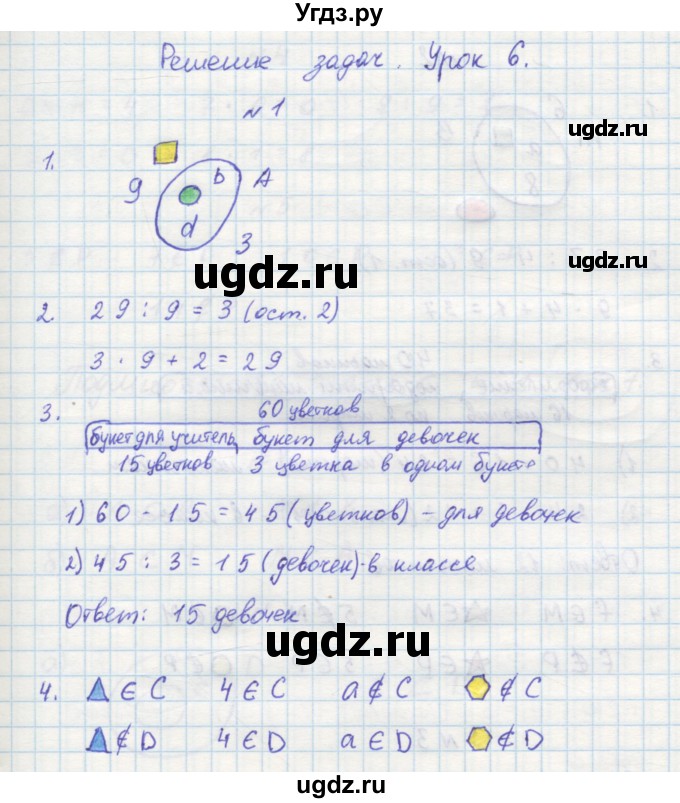 Угдз.ру
Решение задач. Урок 6.
ugdz.ru
№1
1.
9 b A
d
3
ugdz.ru
ugdz.ru
2. 29 : 9 = 3 (ост. 2)
3 · 9 + 2 = 29
3. 60 цветков
букет для учитель букет для девочек
15 цветков 3 цветка в одном букете
1) 60 - 15 = 45 (цветков) - для девочек
ugdz.ru
2) 45 : 3 = 15 (девочек) - в классе
Ответ: 15 девочек
ugdz.ru
4. ∈ C 4 ∈ C a ∉ C ∉ C
∉ D 4 ∈ D a ∈ D ∉ D
ugdz.ru
ugdz.ru
ugdz.ru